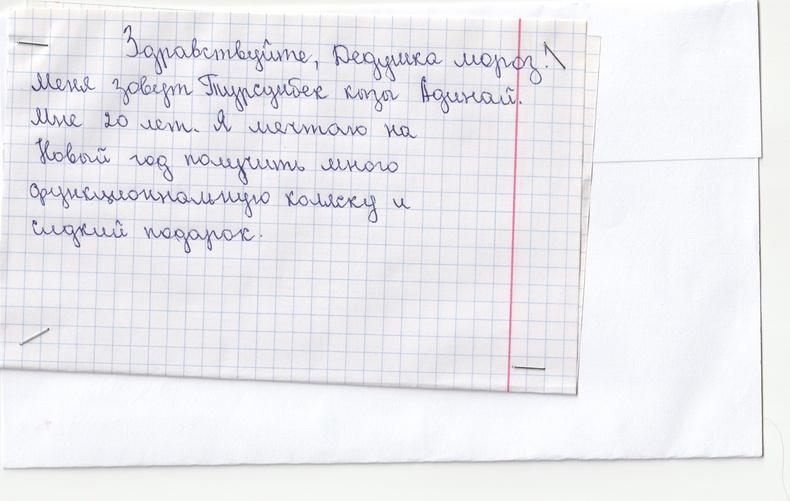 Здравствуйте, Дедушка мороз!
Меня зовут Турсунбек кызы Адинай.
Мне 20 лет. Я мечтаю на
Новый год получить много
функциональную коляску и
сладкий подарок.